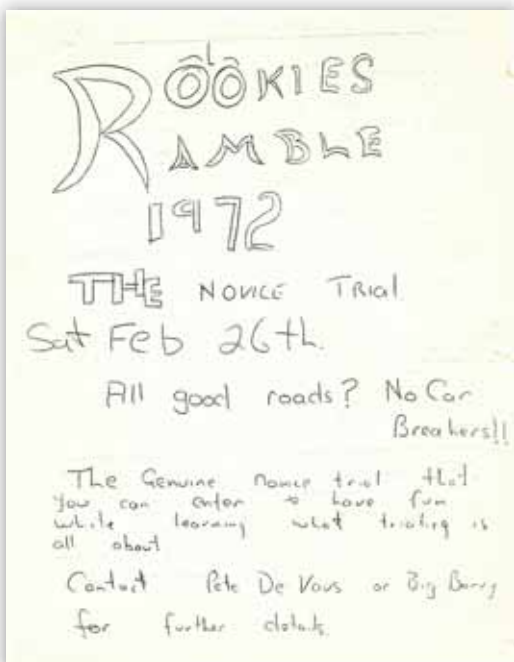 ROOKIES
RAMBLE
1972
THE NOVICE TRIAL
Sat Feb 26th.
All good roads? No Car
Breakers!!
The Genuine novice trial that
you can enter to have fun
while learning what trialing is
all about
Contact Pete De Vaus or Big Barry
for further details.